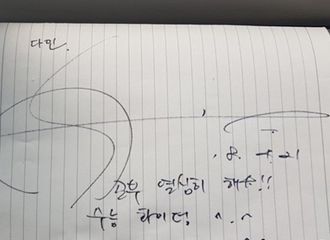 다민.
공부 열심히 해요!!
수능 화이팅 ^.^